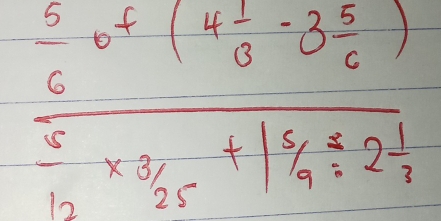 5/6 of (4 1/3 - 3 5/6)
5/12 × 3/25 + 1 5/9 ÷ 2 1/3